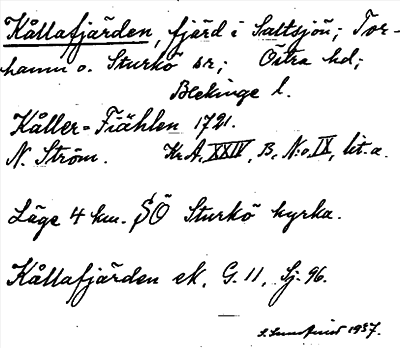 Kållafjärden, fjärd i Saltsjön; Tor-
hamn o. Sturkö sr; Östra hd;
Blekinge l.
Kåller=Fiählen 1721.
N. Ström. Kr.A, XXIV, B, N:o IX, lit. a.
Läge 4 km. SÖ Sturkö kyrka.
Kållafjärden ek. G. 11, Sj. 96.
1937.